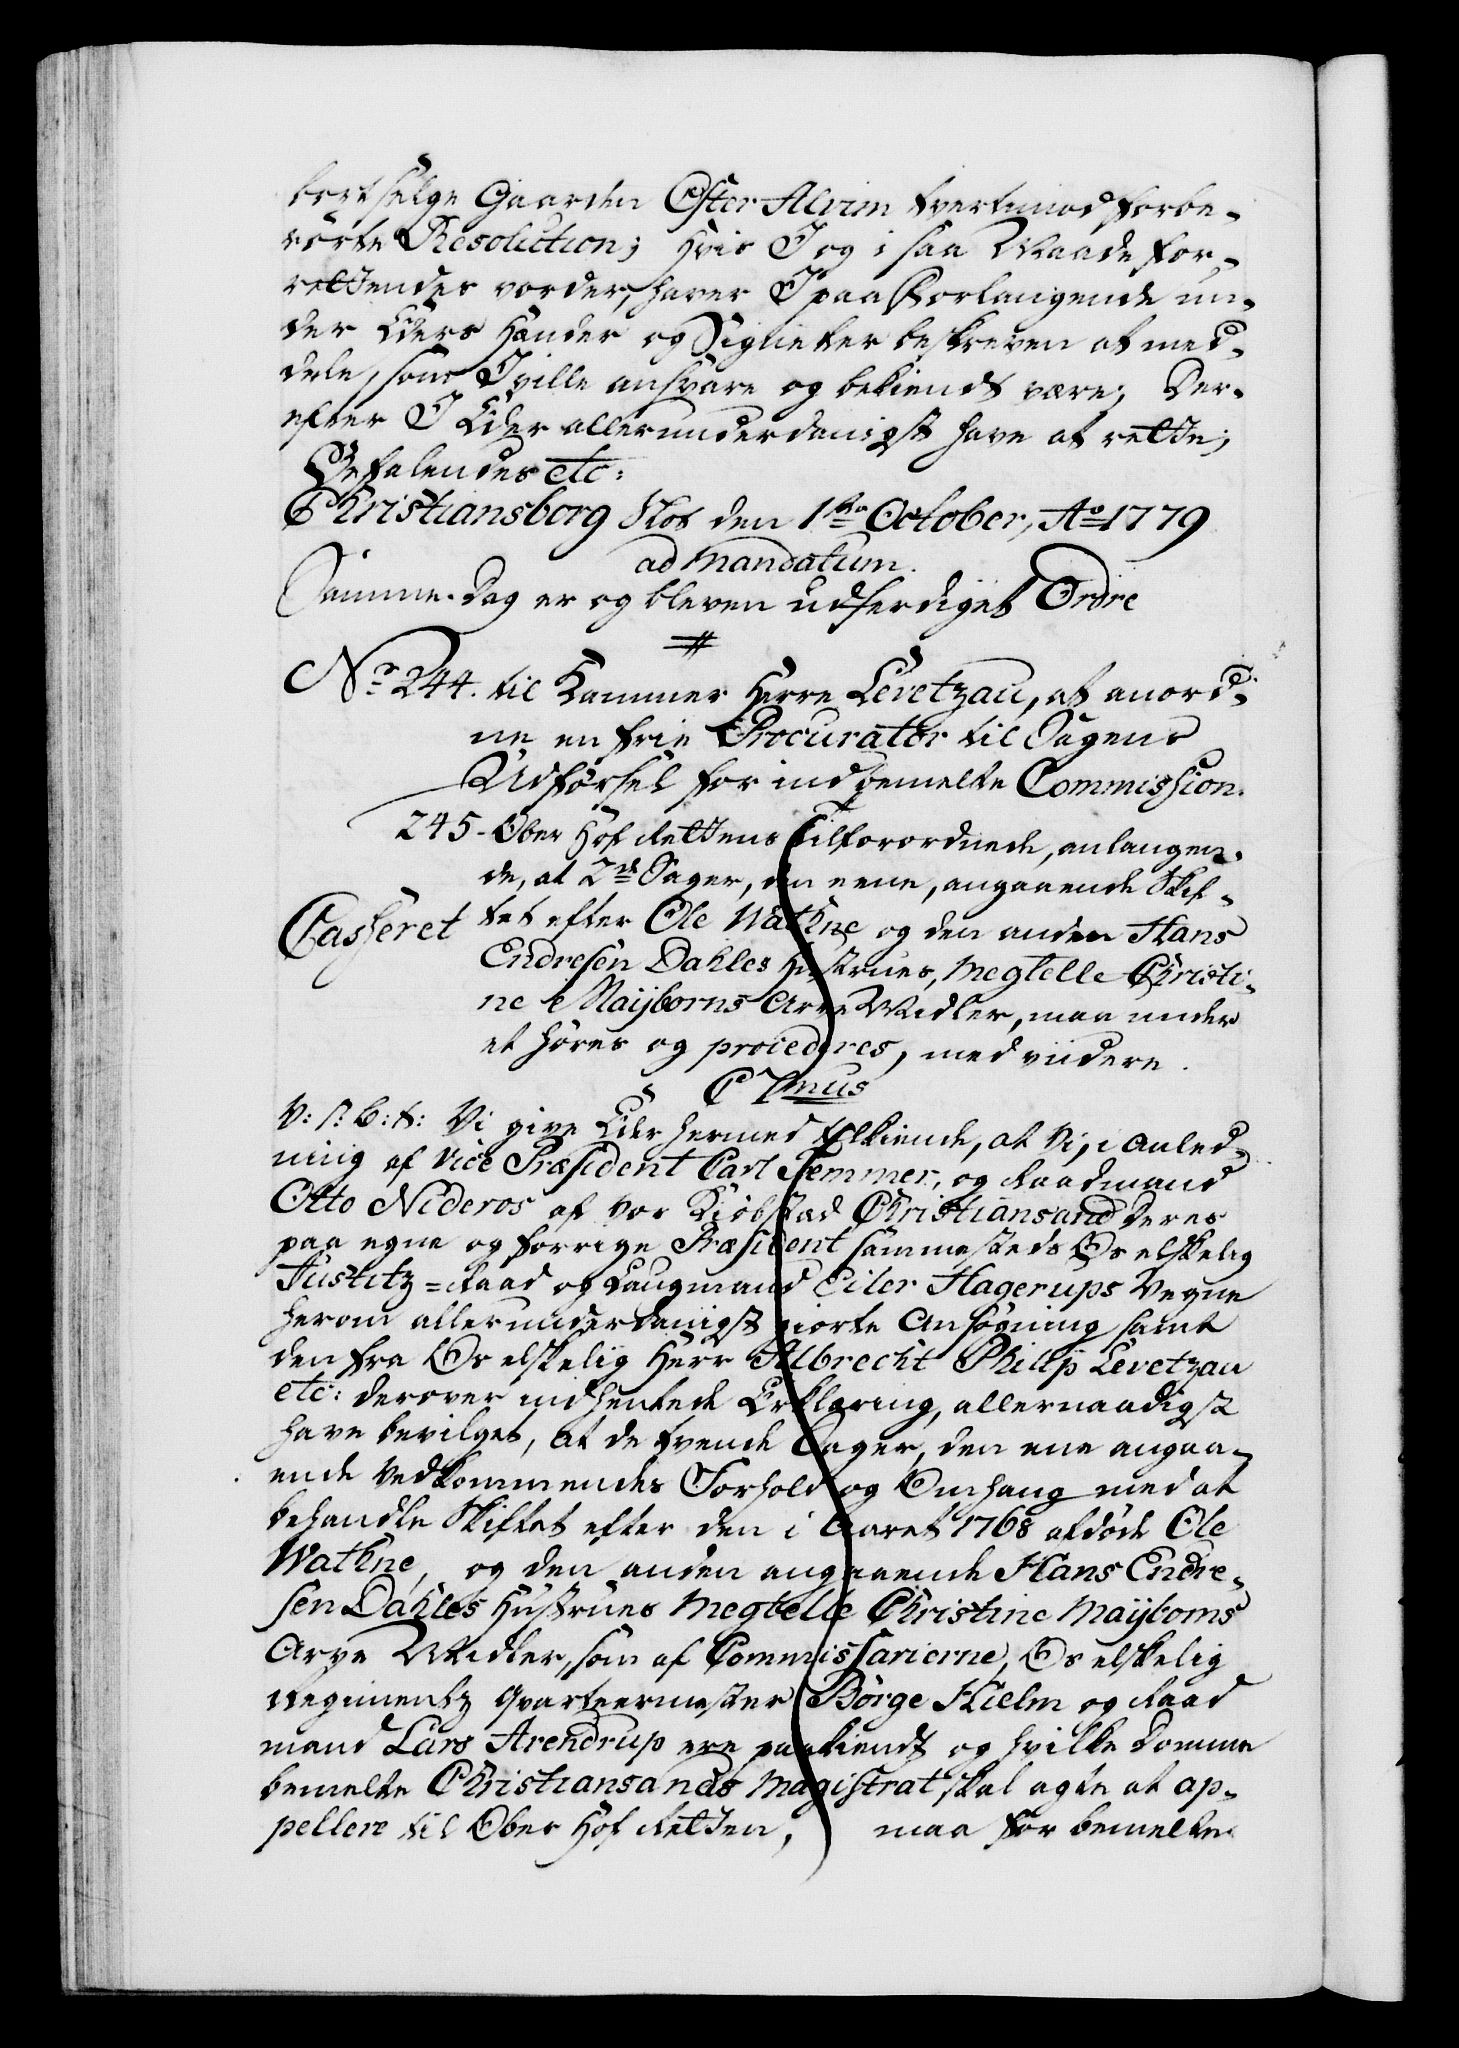 bortselge Gaarden Øster Alvim tvertimod forbe-
rørte Resolution; Hvis I og i saa Maade for-
rettendes vorder, haver I paa Forlangende un-
der Eders Hænder og Signeter beskreven at med-
dele, som I ville ansvare og bekiendt være; Der-
efter I Eder allerunderdanigst have at rette;
Befalendes etc:
Christiansborg Slot den 1ste October, Ao 1779
ad mandatum.
Samme Dag er og bleven udferdiget Ordre
No 244. til Kammer Herre Levetzau, at anord-
ne en frie Procurator til Sagens
Udførsel for indbemelte Commission.
245. Ober Hof Rettens Tilforordnede, anlangen-
de, at 2de Sager, den eene, angaaende Skif-
Casseret tet efter Ole Wathne og den anden Hans
Endresen Dahles Hustrues, Megtelle Christi-
ne Maijborns Arve Midler, maa under
et høres og procederes, med viidere.
C 7mus
V: S: B: T: Vi give Eder hermed tilkiende, at Vi, i Anled-
ning af Vice Præsident Carl Femmer, og Raadmand
Otto Nideros af vor Kiøbstad Christiansand deres
paa egne og forrige Præsident sammesteds Os elskelig
Justitz-Raad og Laugmand Eiler Hagerups Vegne
herom allerunderdanigst giorte Ansøgning samt
den fra Os elskelig Herr Albrecht Philip Levetzau
etc: derover indhentede Erklæring, allernaadigst
have bevilget, at de tvende Sager, den ene angaa-
ende Vedkommendes Forhold og Omgang med at
behandle Skiftet efter den i Aaret 1768 afdøde Ole
Wathne, og den anden angaaende Hans Endre-
sen Dahles Hustrues Megtelle Christine Maijborns
Arve Midler, som af Commissarierne, Os elskelig
Regimentz Qvarteermester Børge Hielm og Raad
mand Lars Arendrup ere paakiendt og hvilke Domme
bemelte Christiansands Magistrat skal agte at ap-
pellere til Ober Hof Retten, maa for bemelte